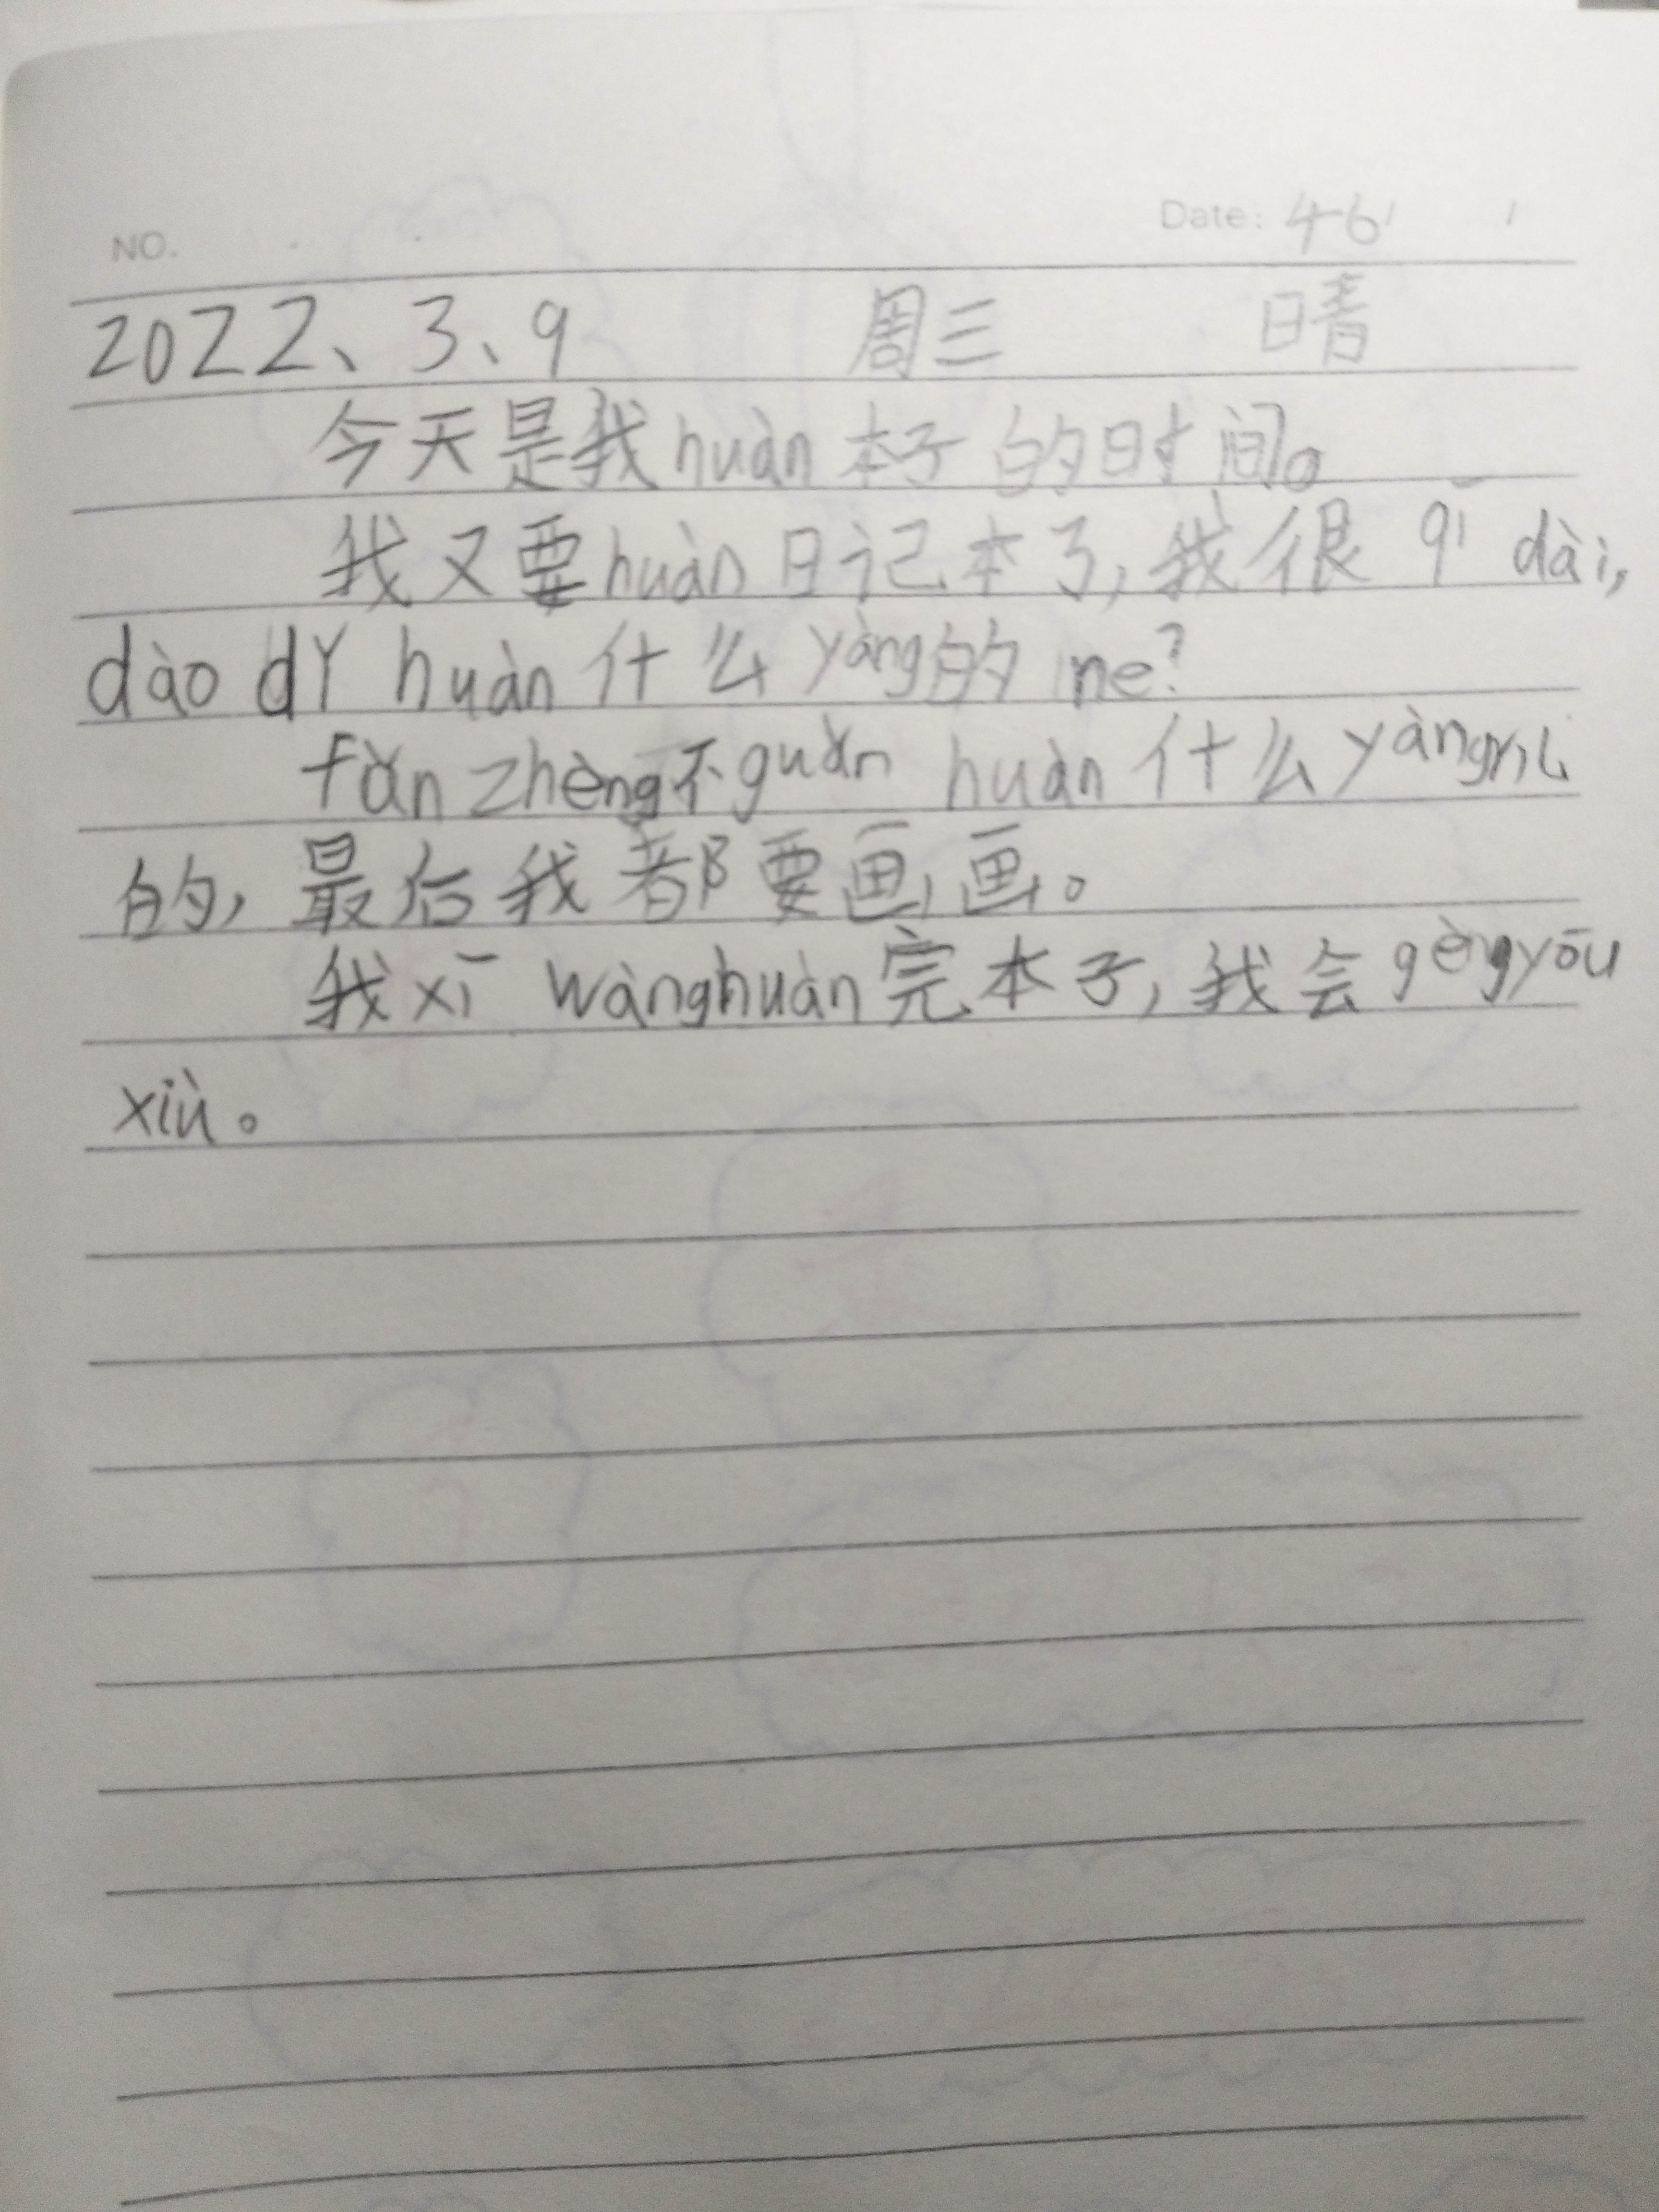 NO. Date: 46
2022、3、9 周三 晴
今天是我huàn本子的时间。
我又要huàn日记本了,我很 qī dài,
dào dǐ huàn 什么 yàng的 ne?
fǎn zhèng不guǎn huàn 什么 yàng
的,最后我都要画画。
我xī wànghuàn完本子,我会gèngyōu
xiù。